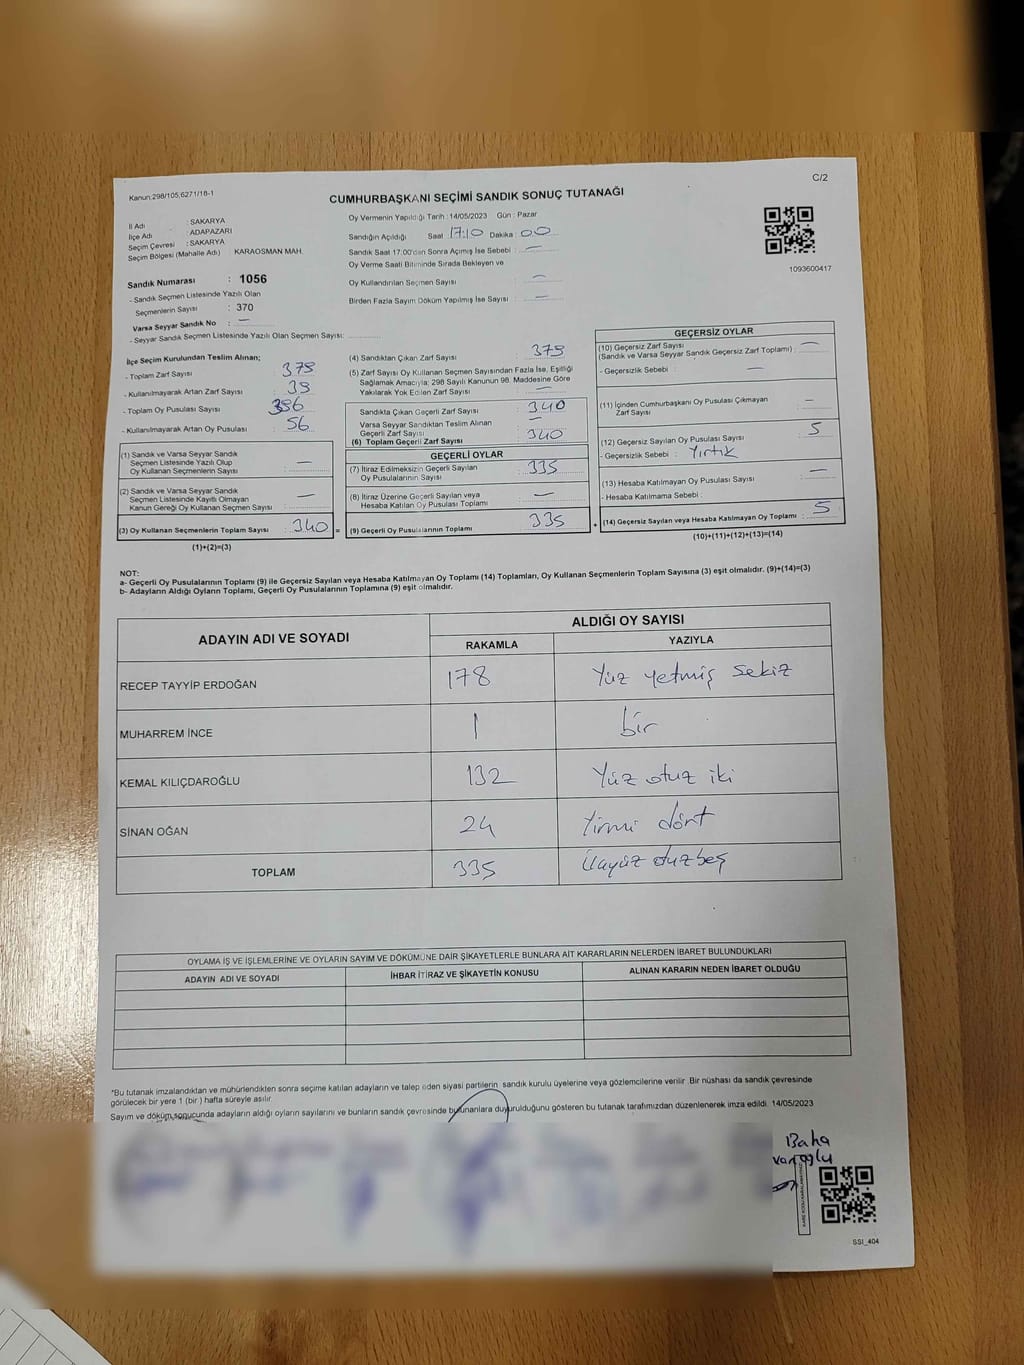 Kanun:298/105;6271/18-1
C/2
CUMHURBAŞKANI SEÇİMİ SANDIK SONUÇ TUTANAĞI
İl Adı : SAKARYA
İlçe Adı : ADAPAZARI
Seçim Çevresi : SAKARYA
Seçim Bölgesi (Mahalle Adı) : KARAOSMAN MAH.
Oy Vermenin Yapıldığı Tarih : 14/05/2023 Gün : Pazar
Sandığın Açıldığı Saat 17:10 Dakika : 00
Sandık Saat 17:00'den Sonra Açımış İse Sebebi : —
Oy Verme Saati Bitiminde Sırada Bekleyen ve
Oy Kullandırılan Seçmen Sayısı : —
Birden Fazla Sayım Döküm Yapılmış İse Sayısı : —
1093600417
Sandık Numarası : 1056
- Sandık Seçmen Listesinde Yazılı Olan
Seçmenlerin Sayısı : 370
Varsa Seyyar Sandık No : —
- Seyyar Sandık Seçmen Listesinde Yazılı Olan Seçmen Sayısı:
İlçe Seçim Kurulundan Teslim Alınan;
- Toplam Zarf Sayısı : 379
- Kullanılmayarak Artan Zarf Sayısı : 39
- Toplam Oy Pusulası Sayısı : 396
- Kullanılmayarak Artan Oy Pusulası : 56
(1) Sandık ve Varsa Seyyar Sandık
Seçmen Listesinde Yazılı Olup
Oy Kullanan Seçmenlerin Sayısı : —
(2) Sandık ve Varsa Seyyar Sandık
Seçmen Listesinde Kayıtlı Olmayan
Kanun Gereği Oy Kullanan Seçmen Sayısı : —
(3) Oy Kullanan Seçmenlerin Toplam Sayısı : 340 =
(1)+(2)=(3)
(4) Sandıktan Çıkan Zarf Sayısı : 379
(5) Zarf Sayısı Oy Kullanan Seçmen Sayısından Fazla İse, Eşitliği
Sağlamak Amacıyla; 298 Sayılı Kanunun 98. Maddesine Göre
Yakılarak Yok Edilen Zarf Sayısı : —
Sandıkta Çıkan Geçerli Zarf Sayısı : 340
Varsa Seyyar Sandıktan Teslim Alınan
Geçerli Zarf Sayısı : —
(6) Toplam Geçerli Zarf Sayısı : 340
GEÇERLİ OYLAR
(7) İtiraz Edilmeksizin Geçerli Sayılan
Oy Pusulalarının Sayısı : 335
(8) İtiraz Üzerine Geçerli Sayılan veya
Hesaba Katılan Oy Pusulası Toplamı : —
(9) Geçerli Oy Pusulalarının Toplamı : 335 +
GEÇERSİZ OYLAR
(10) Geçersiz Zarf Sayısı
(Sandık ve Varsa Seyyar Sandık Geçersiz Zarf Toplamı) : —
- Geçersizlik Sebebi : —
(11) İçinden Cumhurbaşkanı Oy Pusulası Çıkmayan
Zarf Sayısı : —
(12) Geçersiz Sayılan Oy Pusulası Sayısı : 5
- Geçersizlik Sebebi : Yırtık
(13) Hesaba Katılmayan Oy Pusulası Sayısı : —
- Hesaba Katılmama Sebebi :
(14) Geçersiz Sayılan veya Hesaba Katılmayan Oy Toplamı : 5
(10)+(11)+(12)+(13)=(14)
NOT:
a- Geçerli Oy Pusulalarının Toplamı (9) ile Geçersiz Sayılan veya Hesaba Katılmayan Oy Toplamı (14) Toplamları, Oy Kullanan Seçmenlerin Toplam Sayısına (3) eşit olmalıdır. (9)+(14)=(3)
b- Adayların Aldığı Oyların Toplamı, Geçerli Oy Pusulalarının Toplamına (9) eşit olmalıdır.
ADAYIN ADI VE SOYADI
ALDIĞI OY SAYISI
RAKAMLA YAZIYLA
RECEP TAYYİP ERDOĞAN 178 Yüz yetmiş sekiz
MUHARREM İNCE 1 bir
KEMAL KILIÇDAROĞLU 132 Yüz otuz iki
SİNAN OĞAN 24 Yirmi dört
TOPLAM 335 Üçyüz otuzbeş
OYLAMA İŞ VE İŞLEMLERİNE VE OYLARIN SAYIM VE DÖKÜMÜNE DAİR ŞİKAYETLERLE BUNLARA AİT KARARLARIN NELERDEN İBARET BULUNDUKLARI
ADAYIN ADI VE SOYADI İHBAR İTİRAZ VE ŞİKAYETİN KONUSU ALINAN KARARIN NEDEN İBARET OLDUĞU
*Bu tutanak imzalandıktan ve mühürlendikten sonra seçime katılan adayların ve talep eden siyasi partilerin sandık kurulu üyelerine veya gözlemcilerine verilir. Bir nüshası da sandık çevresinde
görülecek bir yere 1 (bir) hafta süreyle asılır.
Sayım ve döküm sonucunda adayların aldığı oyların sayılarını ve bunların sandık çevresinde bulunanlara duyurulduğunu gösteren bu tutanak tarafımızdan düzenlenerek imza edildi. 14/05/2023
Baha
SSI_404